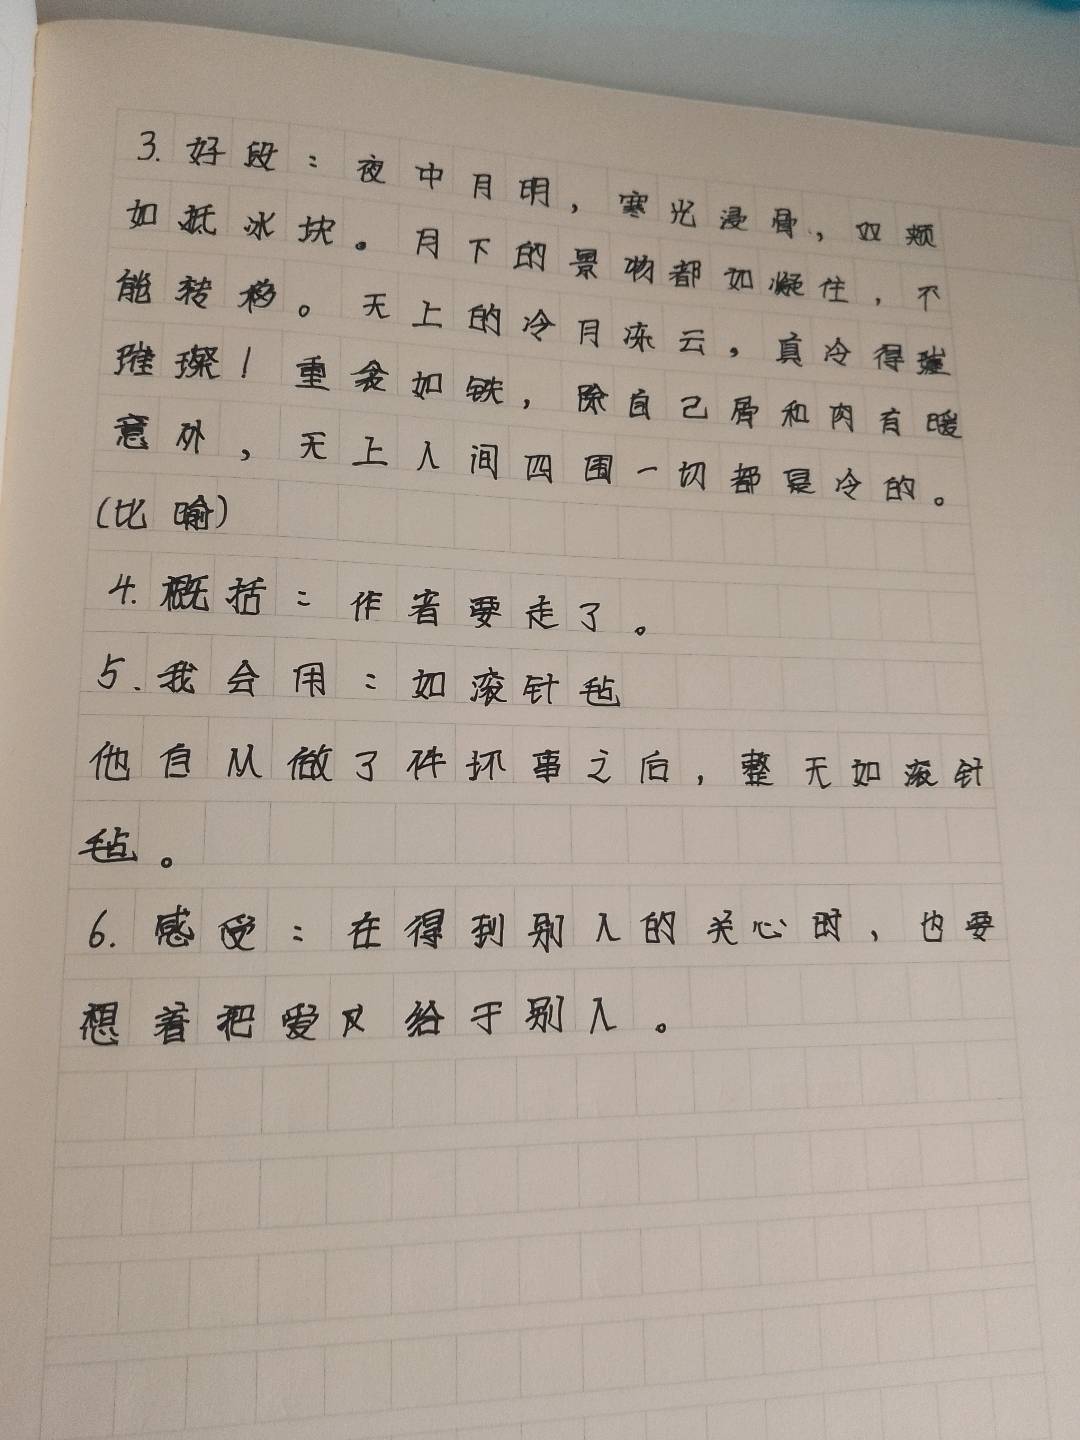 3.好段：夜中月明，寒光浸骨，双颊
如抵冰块。月下的景物都如凝住，不
能转移。天上的冷月冻云，真冷得璀
璀璨！重衾如铁，除自己骨和肉有暖
意外，天上人间四围一切都是冷的。
(比喻)
4.概括：作者要走了。
5.我会用：如滚针毡
他自从做了件坏事之后，整天如滚针
毡。
6.感受：在得到别人的关心时，也要
想着把爱反给于别人。